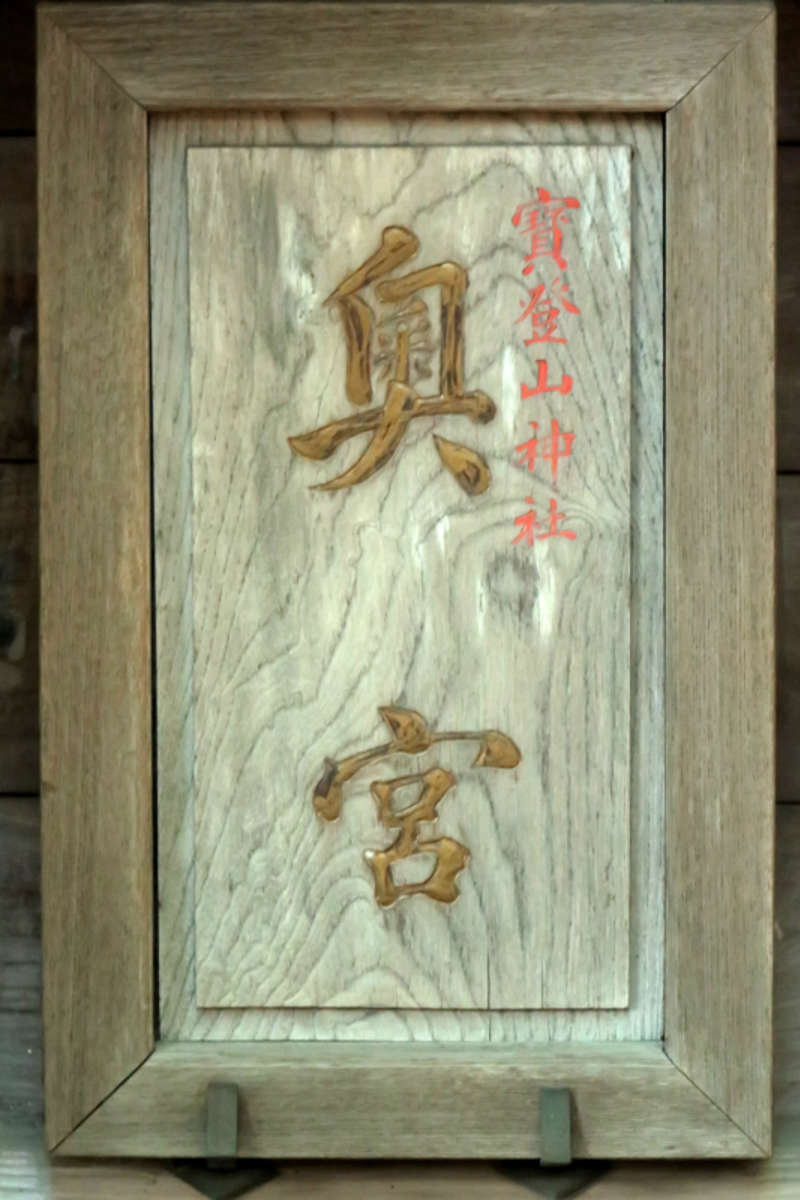 寶登山神社
奥宮